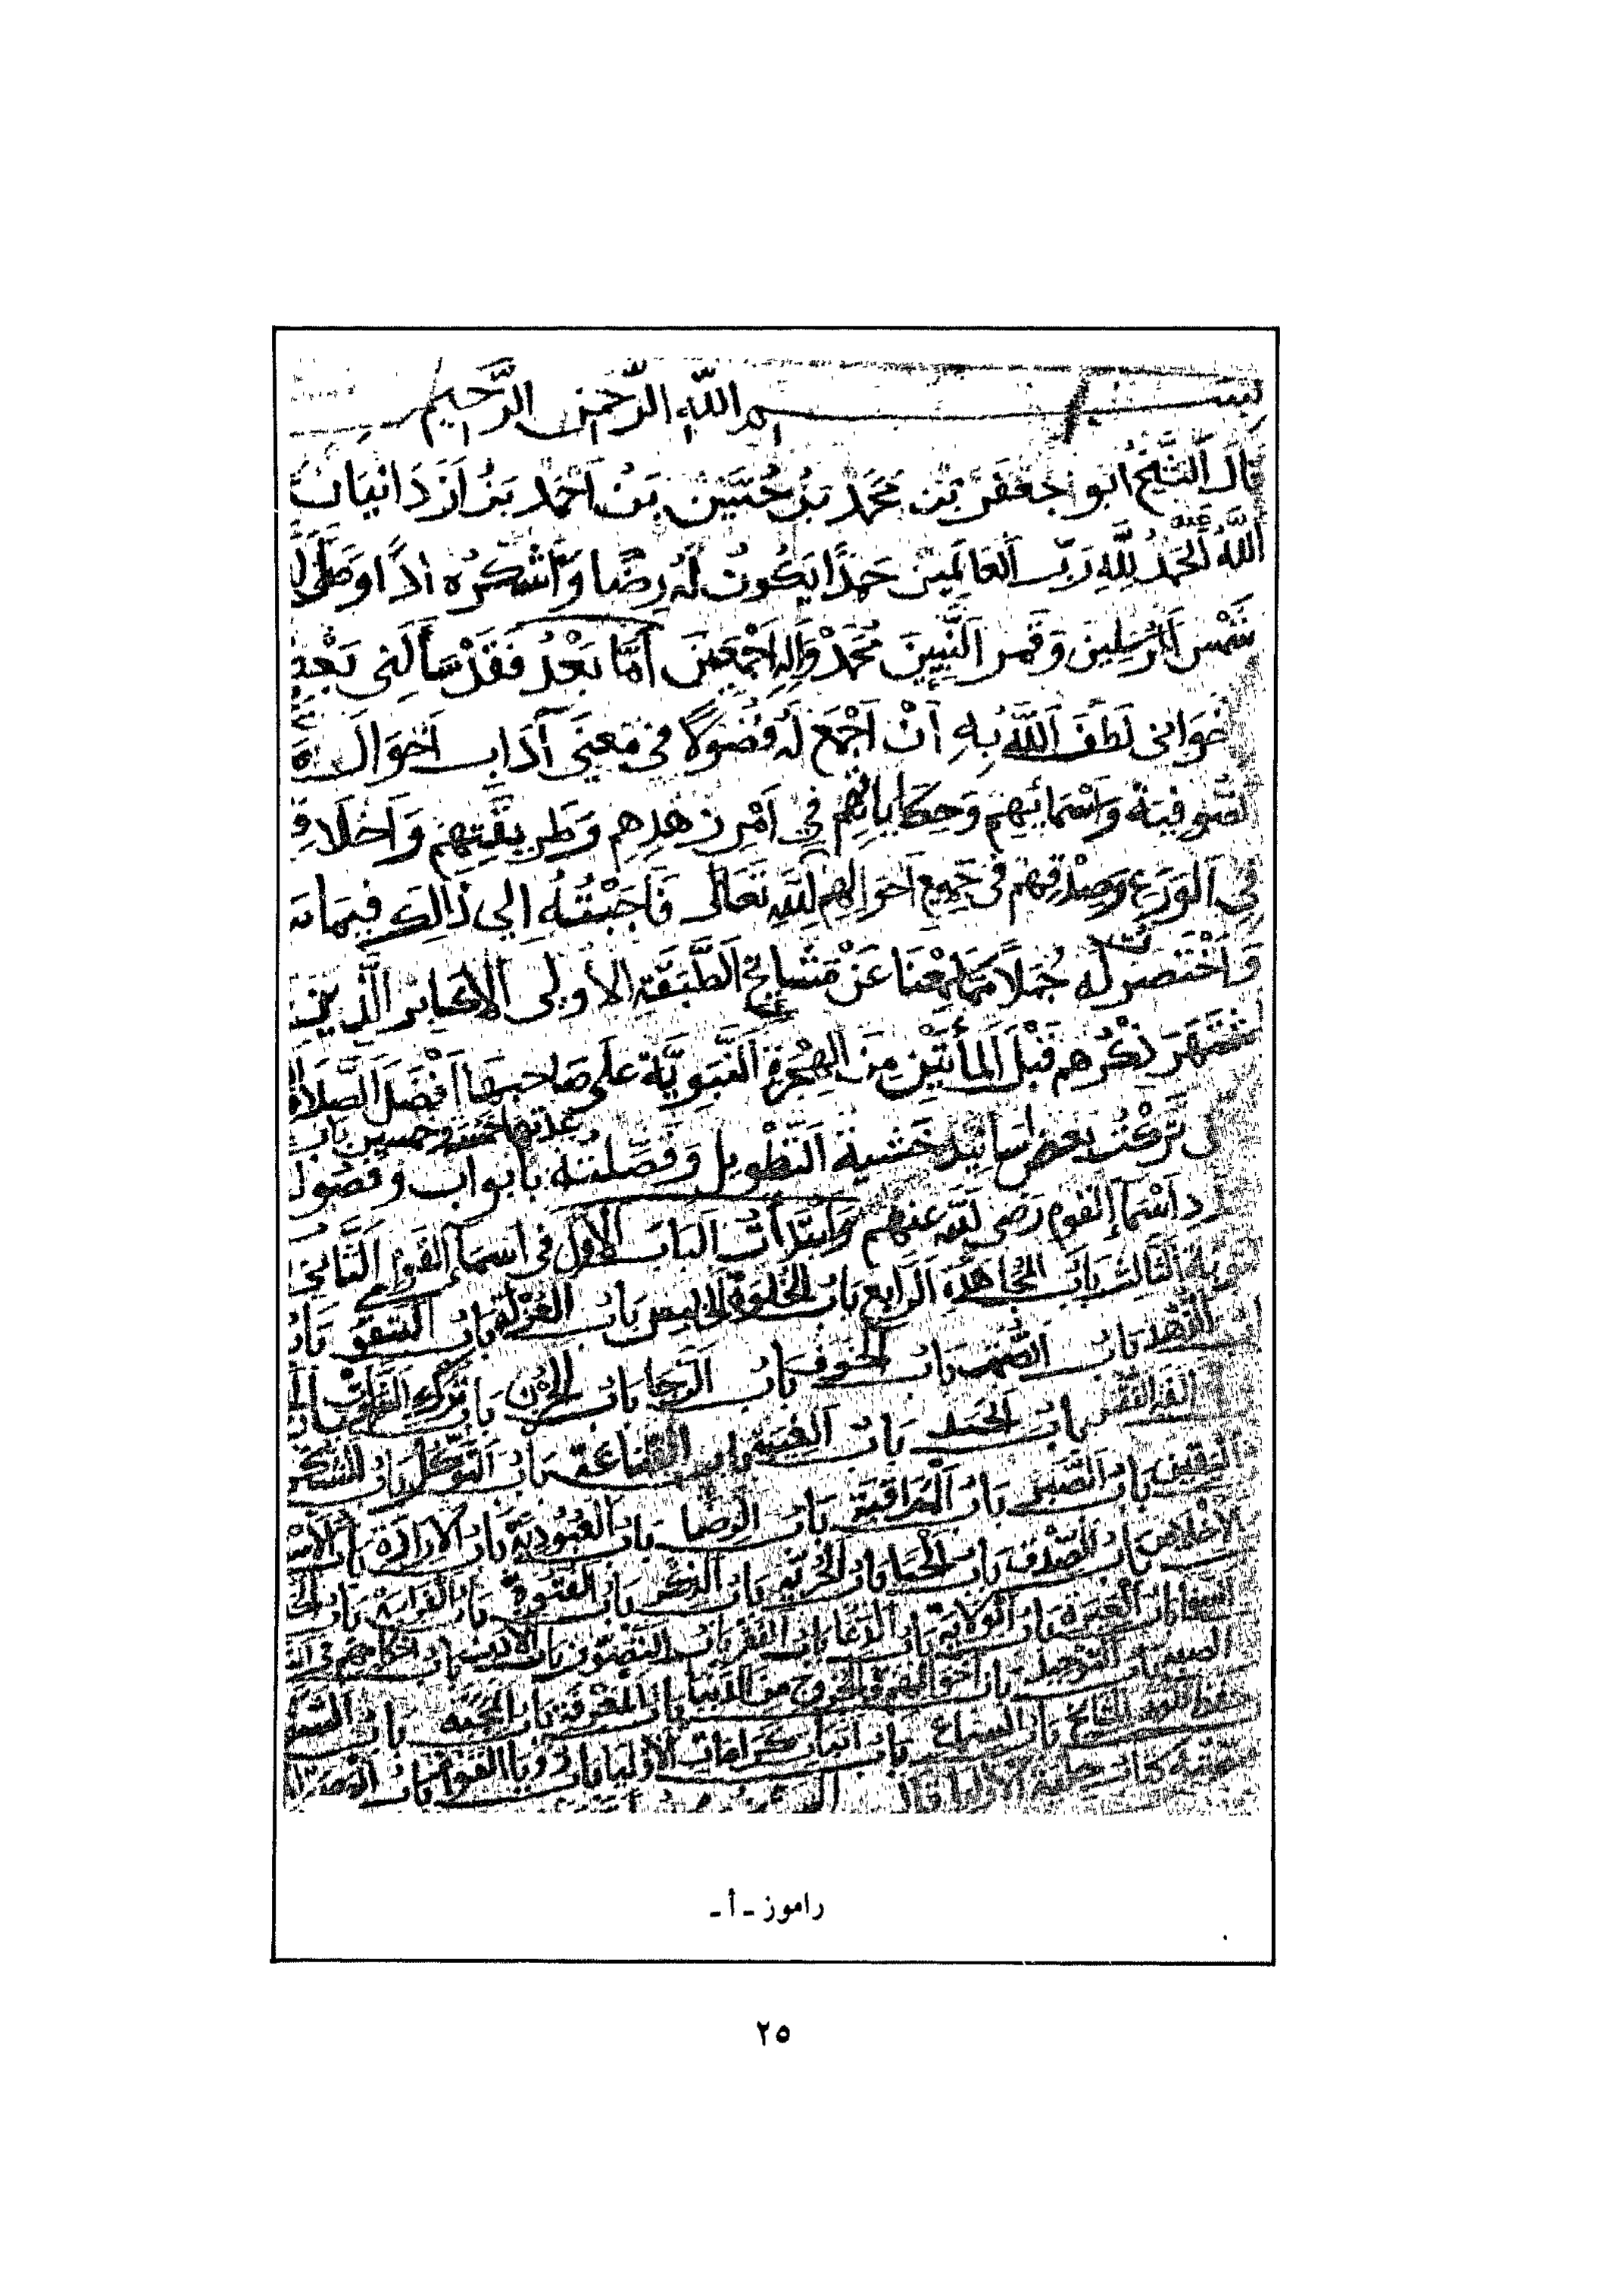 بسم الله الرحمن الرحيم
قال الشيخ ابو جعفر بن محمد بن حسين بن احمد بن ازدانيات
الله الحمد لله رب العالمين حمدا يكون له رضا واشكره اذا وصلى
شمس المرسلين وقمر النبيين محمد واله اجمعين اما بعد فقد سألنى بعض
خوانى لطف الله به ان اجمع له فصولا فى معنى آداب احوال
لصوفية واسمائهم وحكاياتهم في امر زهدهم وطريقتهم واخلاق
في الورع وصدقهم فى جميع احوالهم لله تعالى فاجبته الى ذالك فيما
واختصر له جملا مما سمعنا عن مشايخ الطبقة الاولى الاكابر الذين
شتهر ذكرهم قبل المأتين من الهجرة النبوية على صاحبها افضل الصلاة
عدتها خمسة وخمسين باب
تركت بعض اسانيد خشية التطويل وفصلته بابواب وفصول
اسما القوم رضى الله عنهم وابتدأت الباب الاول فى اسما القوم الثانى
التوبة الثالث باب المجاهدة الرابع باب الخلوة الخامس باب العزلة باب التقوى باب
الزهد باب الصمت باب الخوف باب الرجا باب الحزن باب ترك
باب الحسد باب الغيبة باب القناعة باب التوكل باب الشكر
اليقين باب الصبر باب المراقبة باب الرضا باب العبودية باب الارادة باب
الاخلاص باب الصدق باب الحيا باب الحرية باب الذكر باب الفتوة باب الفراسة باب
باب الغيرة باب الولاية باب الدعا باب الفقر باب التصوف باب الادب باب احكامهم فى
باب التوحيد باب احوالهم فى الخروج من الدنيا باب المعرفة باب المحبة باب
حفظ قلوب المشايخ باب السماع باب اثبات كرامات الاوليا باب رؤيا القوم باب
كتاب حلية الاوليا قال
راموز - أ -
٢٥